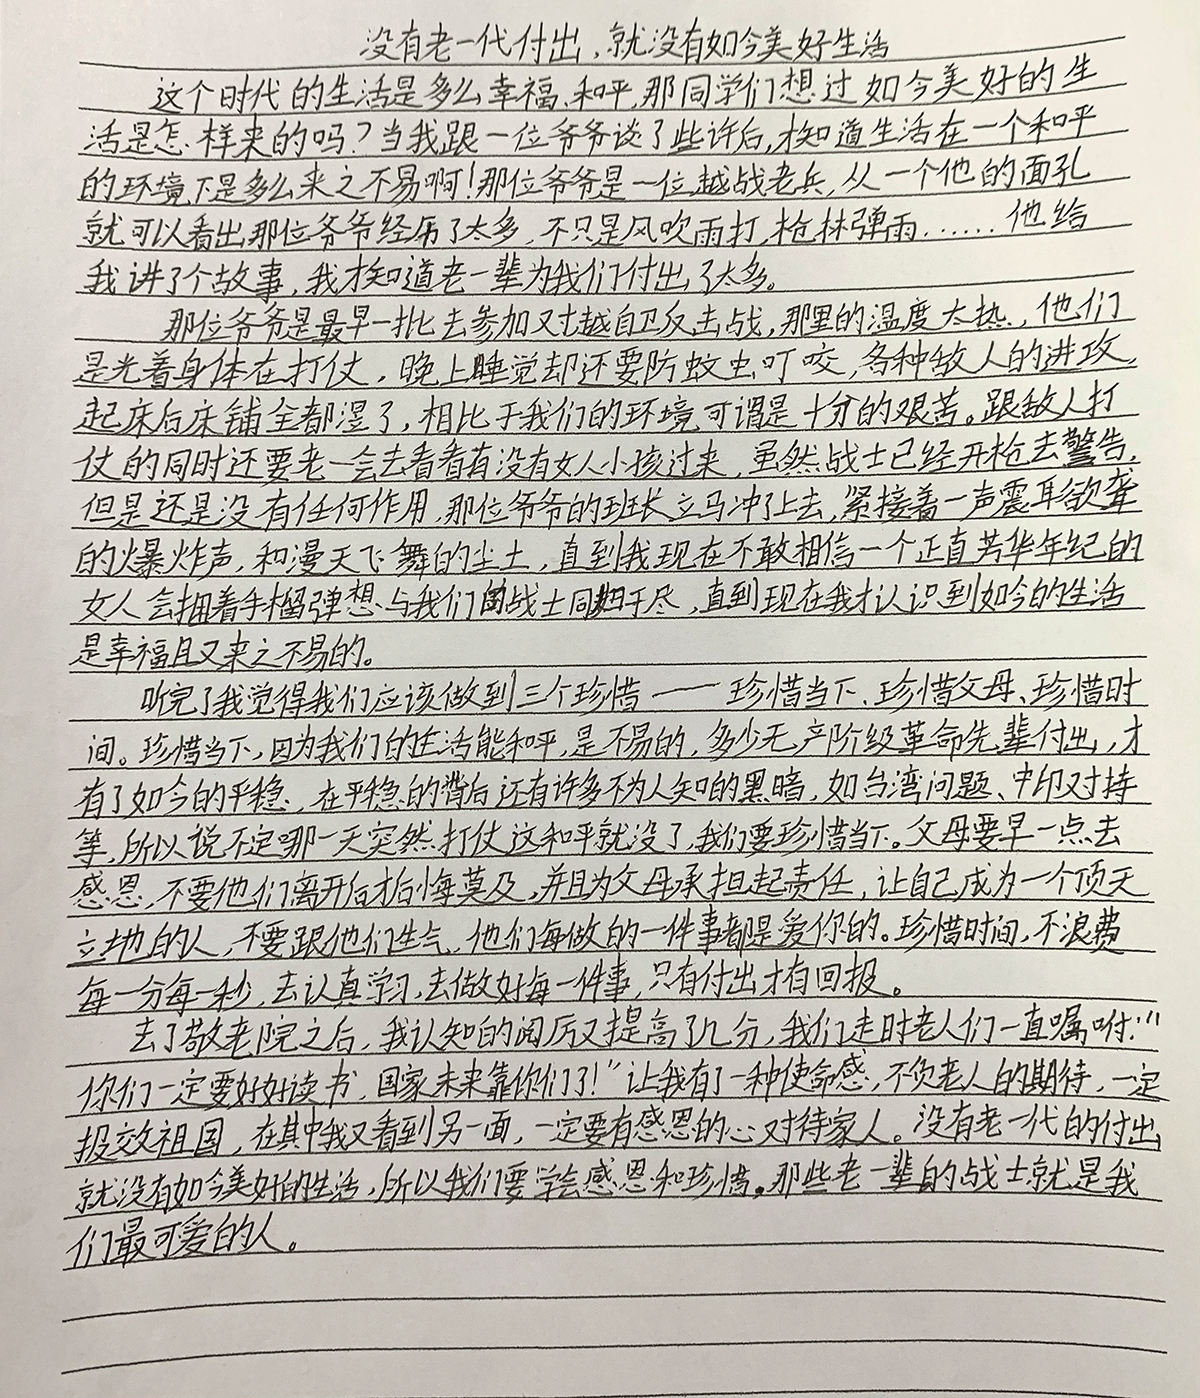 没有老一代付出、就没有如今美好生活
这个时代的生活是多么幸福、和平,那同学们想过如今美好的生
活是怎样来的吗?当我跟一位爷爷谈了些许后,才知道生活在一个和平
的环境下是多么来之不易啊!那位爷爷是一位越战老兵,从一个他的面孔
就可以看出,那位爷爷经历了太多,不只是风吹雨打,枪林弹雨……他给
我讲了个故事,我才知道老一辈为我们付出了太多。
那位爷爷是最早一批去参加对越自卫反击战,那里的温度太热,他们
是光着身体在打仗,晚上睡觉却还要防蚊虫叮咬,各种敌人的进攻,
起床后床铺全都湿了,相比于我们的环境,可谓是十分的艰苦。跟敌人打
仗的同时还要老一会去看看有没有女人小孩过来,虽然战士已经开枪去警告,
但是还是没有任何作用,那位爷爷的班长立马冲了上去,紧接着一声震耳欲聋
的爆炸声,和漫天飞舞的尘土,直到我现在不敢相信一个正直芳华年纪的
女人会拥着手榴弹想与我们的战士同归于尽,直到现在我才认识到如今的生活
是幸福且又来之不易的。
听完了我觉得我们应该做到三个珍惜——珍惜当下、珍惜父母、珍惜时
间。珍惜当下,因为我们的生活能和平,是不易的,多少无产阶级革命先辈付出,才
有了如今的平稳,在平稳的背后还有许多不为人知的黑暗,如台湾问题、中印对持
等,所以说不定哪一天突然打仗这和平就没了,我们要珍惜当下。父母要早一点去
感恩,不要他们离开后才后悔莫及,并且为父母承担起责任,让自己成为一个顶天
立地的人,不要跟他们生气,他们每做的一件事都是爱你的。珍惜时间,不浪费
每一分每一秒,去认真学习,去做好每一件事,只有付出才有回报。
去了敬老院之后,我认知的阅历又提高了几分,我们走时老人们一直嘱咐:"
你们一定要好好读书,国家未来靠你们了!"让我有了一种使命感,不负老人的期待,一定
报效祖国,在其中我又看到另一面,一定要有感恩的心对待家人。没有老一代的付出,
就没有如今美好的生活,所以我们要学会感恩和珍惜。那些老一辈的战士就是我
们最可爱的人。